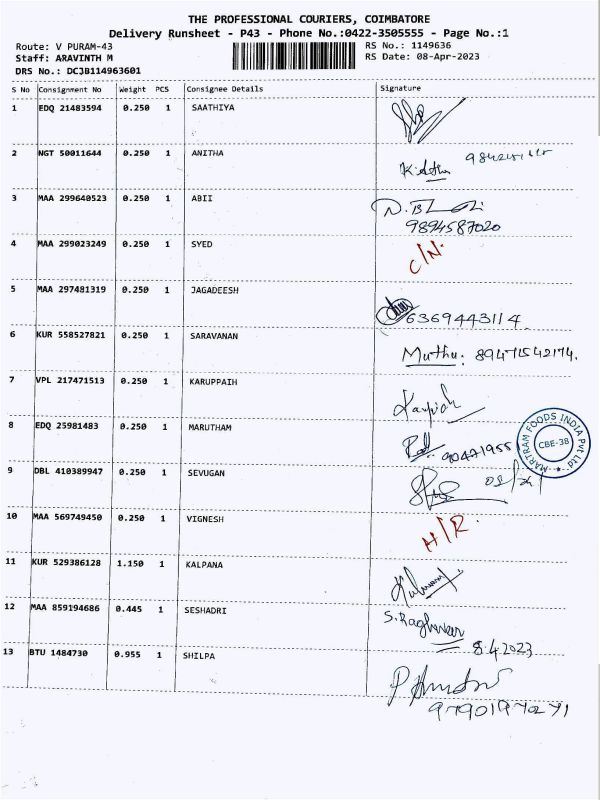 THE PROFESSIONAL COURIERS, COIMBATORE
Delivery Runsheet - P43 - Phone No.:0422-3505555 - Page No.:1
Route: V PURAM-43 RS No.: 1149636
Staff: ARAVINTH M RS Date: 08-Apr-2023
DRS No.: DCJB114963601
S No Consignment No Weight PCS Consignee Details Signature
1 EDQ 21483594 0.250 1 SAATHIYA
2 NGT 50011644 0.250 1 ANITHA
3 MAA 299640523 0.250 1 ABII
9894587020
4 MAA 299023249 0.250 1 SYED C/N.
5 MAA 297481319 0.250 1 JAGADEESH
6369443114
6 KUR 558527821 0.250 1 SARAVANAN
Muthu: 89471542174.
7 VPL 217471513 0.250 1 KARUPPAIH
8 EDQ 25981483 0.250 1 MARUTHAM
90471955
MARTRAM FOODS INDIA Pvt Ltd
CBE-38
9 DBL 410389947 0.250 1 SEVUGAN
10 MAA 569749450 0.250 1 VIGNESH H/R.
11 KUR 529386128 1.150 1 KALPANA
12 MAA 859194686 0.445 1 SESHADRI S. Raghavan
8.4.2023
13 BTU 1484730 0.955 1 SHILPA